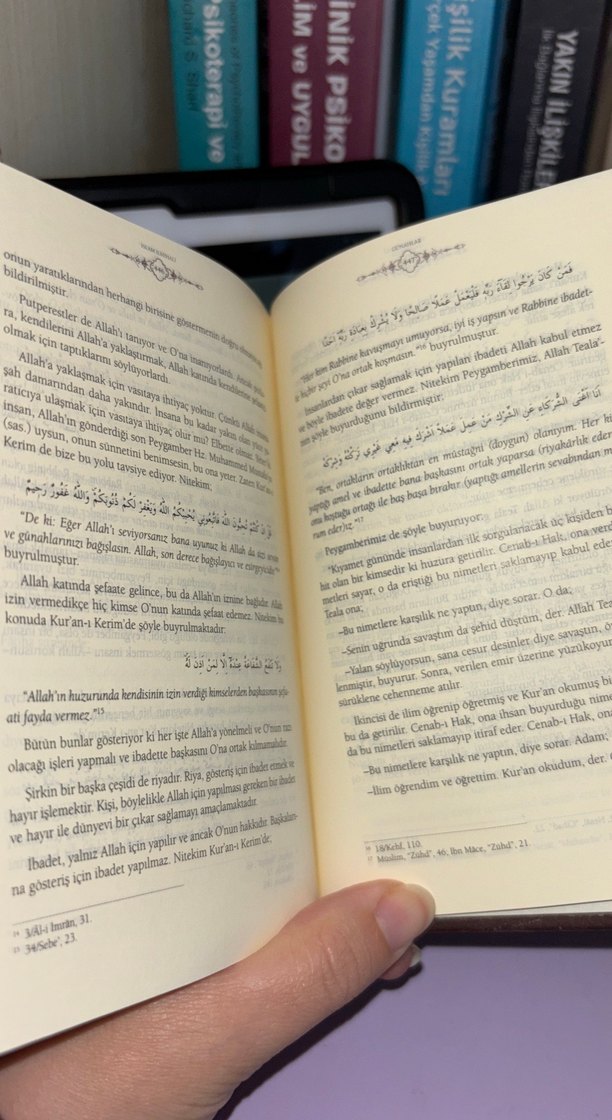 Psikoterapi ve
Richard S. Sharf
İNİK PSİKO
LİM ve UYGUL
işilik Kuramları
YAKIN İLİŞKİLE
onun yaratıklarından herhangi birisine göstermenin doğru olmayacağı
bildirilmiştir.
Putperestler de Allah'ı tanıyor ve O'na inanıyorlardı. Ancak
ra, kendilerini Allah'a yaklaştırmak, Allah katında kendilerine
olmak için taptıklarını söylüyorlardı.
Allah'a yaklaşmak için vasıtaya ihtiyaç yoktur. Çünkü Allah insana
şah damarından daha yakındır. İnsana bu kadar yakın olan
ratıcıya ulaşmak için vasıtaya ihtiyaç olur mu? Elbette olmaz.
insan, Allah'ın gönderdiği son Peygamber Hz. Muhammed Mustafa'ya
(sas.) uysun, onun sünnetini benimsesin, bu ona yeter. Zaten Kur'an-ı
Kerim de bize bu yolu tavsiye ediyor. Nitekim;
قُلْ اِنْ كُنْتُمْ تُحِبُّونَ اللّٰهَ فَاتَّبِعُونِي يُحْبِبْكُمُ اللّٰهُ وَيَغْفِرْ لَكُمْ ذُنُوبَكُمْ وَاللّٰهُ غَفُورٌ رَحِيمٌ
"De ki: Eğer Allah'ı seviyorsanız bana uyunuz ki Allah da sizi sevsin
ve günahlarınızı bağışlasın. Allah, son derece bağışlayıcı ve esirgeyicidir"¹⁴
buyrulmuştur.
Allah katında şefaate gelince, bu da Allah'ın iznine bağlıdır. Allah
izin vermedikçe hiç kimse O'nun katında şefaat edemez. Nitekim bu
konuda Kur'an-ı Kerim'de şöyle buyrulmaktadır:
وَلَا تَنْفَعُ الشَّفَاعَةُ عِنْدَهُ اِلَّا لِمَنْ اَذِنَ لَهُ
"Allah'ın huzurunda kendisinin izin verdiği kimselerden başkasının şefa-
ati fayda vermez."¹⁵
Bütün bunlar gösteriyor ki her işte Allah'a yönelmeli ve O'nun razı
olacağı işleri yapmalı ve ibadette başkasını O'na ortak kılmamalıdır.
Şirkin bir başka çeşidi de riyadır. Riya, gösteriş için ibadet etmek ve
hayır işlemektir. Kişi, böylelikle Allah için yapılması gereken bir ibadet
ve hayır ile dünyevi bir çıkar sağlamayı amaçlamaktadır.
İbadet, yalnız Allah için yapılır ve ancak O'nun hakkıdır. Başkaları-
na gösteriş için ibadet yapılmaz. Nitekim Kur'an-ı Kerim'de;
¹⁴ 3/Âl-i İmrân, 31.
¹⁵ 34/Sebe', 23.
GÜNAHLAR
447
فَمَنْ كَانَ يَرْجُوا لِقَاءَ رَبِّهِ فَلْيَعْمَلْ عَمَلًا صَالِحًا وَلَا يُشْرِكْ بِعِبَادَةِ رَبِّهِ اَحَدًا
"Her kim Rabbine kavuşmayı umuyorsa, iyi iş yapsın ve Rabbine ibadet-
te hiçbir şeyi O'na ortak koşmasın."¹⁶ buyrulmuştur.
İnsanlardan çıkar sağlamak için yapılan ibadeti Allah kabul etmez
ve böyle ibadete değer vermez. Nitekim Peygamberimiz, Allah Teala'-
nın şöyle buyurduğunu bildirmiştir:
اَنَا اَغْنَى الشُّرَكَاءِ عَنِ الشِّرْكِ مَنْ عَمِلَ عَمَلًا اَشْرَكَ فِيهِ مَعِي غَيْرِي تَرَكْتُهُ وَشِرْكَهُ
"Ben, ortakların ortaklıktan en müstağni (doygun) olanıyım. Her ki
yaptığı amel ve ibadette bana başkasını ortak yaparsa (riyakârlık eder
onu koştuğu ortağı ile baş başa bırakır (yaptığı amellerin sevabından m
rum eder)ız."¹⁷
Peygamberimiz de şöyle buyuruyor:
"Kıyamet gününde insanlardan ilk sorgulanacak üç kişiden b
hit olan bir kimsedir ki huzura getirilir. Cenab-ı Hak, ona ver
metleri sayar, o da eriştiği bu nimetleri saklamayıp kabul ede
Teala ona;
–Bu nimetlere karşılık ne yaptın, diye sorar. O da;
–Senin uğrunda savaştım da şehid düştüm, der. Allah Te
–Yalan söylüyorsun, sana cesur desinler diye savaştın, ö
lenmiştir, buyurur. Sonra, verilen emir üzerine yüzükoyu
sürüklene cehenneme atılır.
İkincisi de ilim öğrenip öğretmiş ve Kur'an okumuş bi
bu da getirilir. Cenab-ı Hak, ona ihsan buyurduğu nim
da bu nimetleri saklamayıp itiraf eder. Cenab-ı Hak, on
–Bu nimetlere karşılık ne yaptın, diye sorar. Adam;
–İlim öğrendim ve öğrettim. Kur'an okudum, der.
¹⁶ 18/Kehf, 110.
¹⁷ Müslim, "Zühd", 46, İbn Mâce, "Zühd", 21.